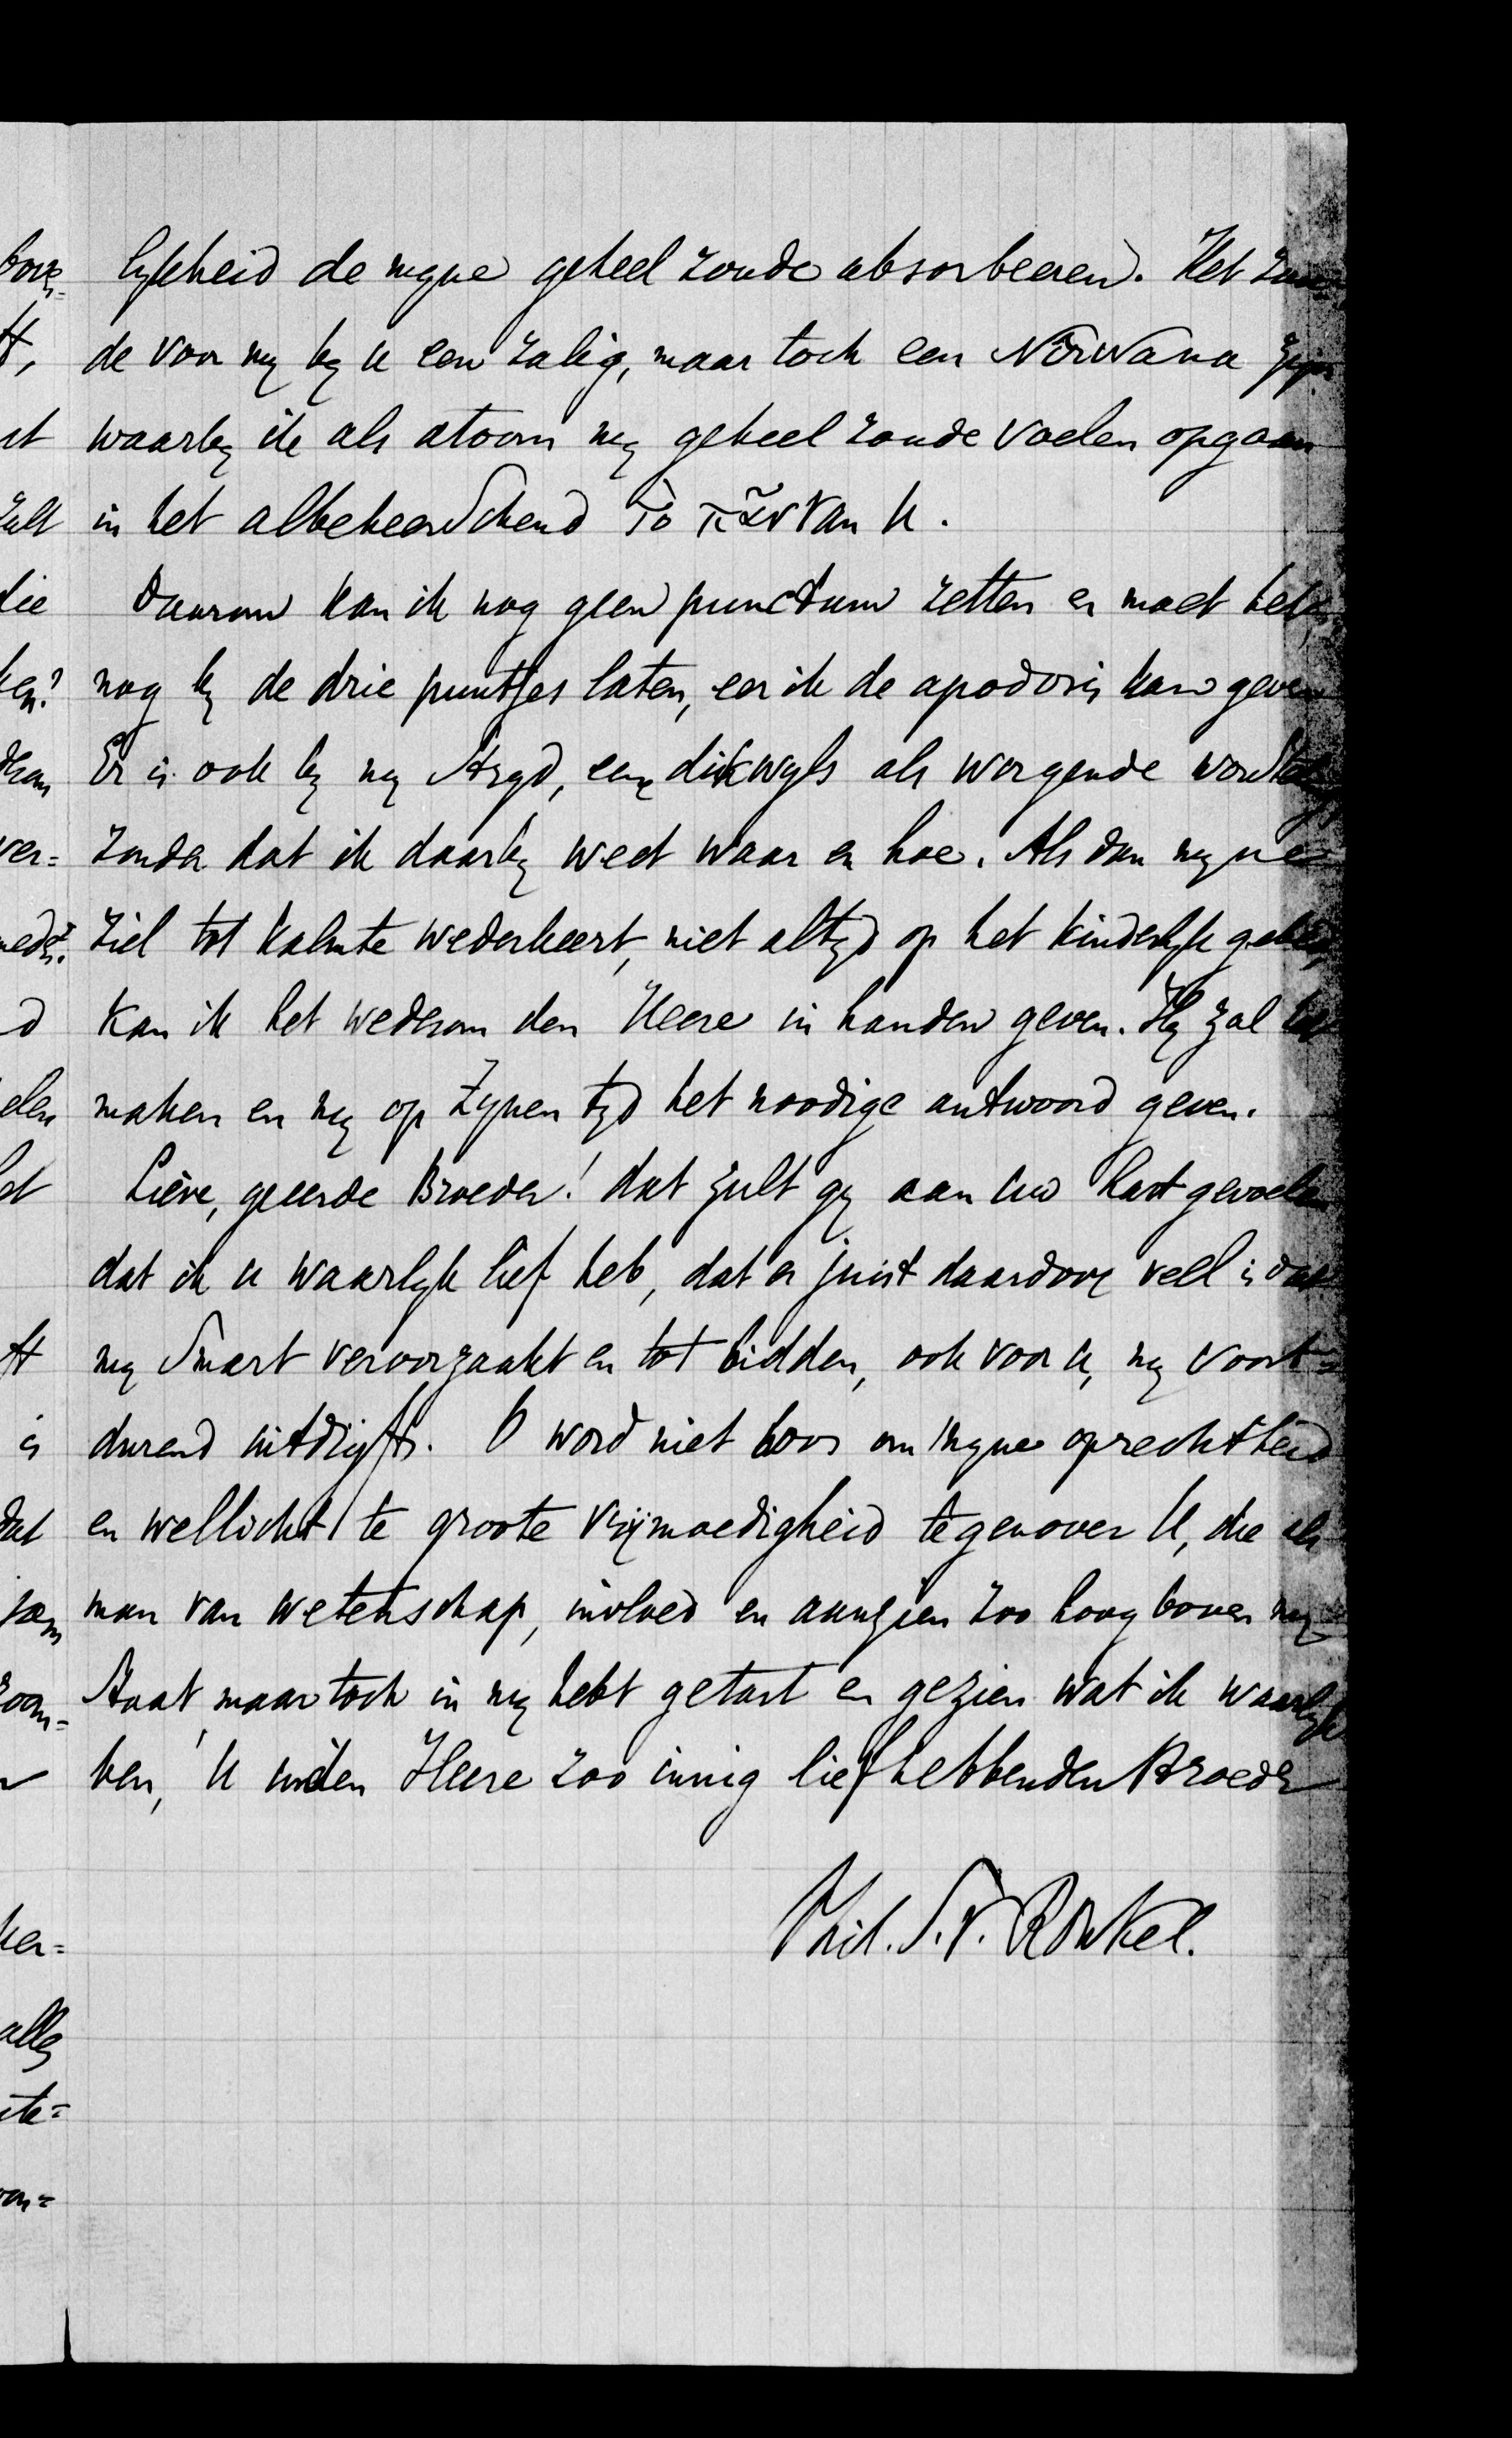 lykheid de myne geheel zoude absorbeeren. Het zou=
de voor my by u een zalig, maar toch een Nirwana zijn
waarby ik als atoom my geheel zoude voelen opgaan
in het albeheerschend τὸ πᾶν van U.
Daarom kan ik nog geen punctum zetten en moet het
nog by de drie puntjes laten, eer ik de apodosis kan geven
Er is ook by my stryd, een dikwyls als worgende worsteling,
zonder dat ik daarby weet waar en hoe. Als dan myne
ziel tot kalmte wederkeert, niet altyd op het kinderlyk gebed,
kan ik het wederom den Heere in handen geven. Hy zal het
maken en my op Zynen tyd het noodige antwoord geven.
Liève, geeerde Broeder! dat zult gy aan uw hart gevoelen
dat ik u waarlyk lief heb, dat er juist daardoor veel is dat
my smart veroorzaakt en tot bidden, ook voor u, my voort=
durend uitdryft. O word niet boos om myne oprechtheid
en wellicht te groote vrijmoedigheid tegenover U, die als
man van wetenschap, invloed en aanzien zoo hoog boven my
staat, maar toch in my hebt getast en gezien wat ik waarlyk
ben, U in den Heere zoo innig liefhebbenden Broeder
Phil. S. v. Ronkel.